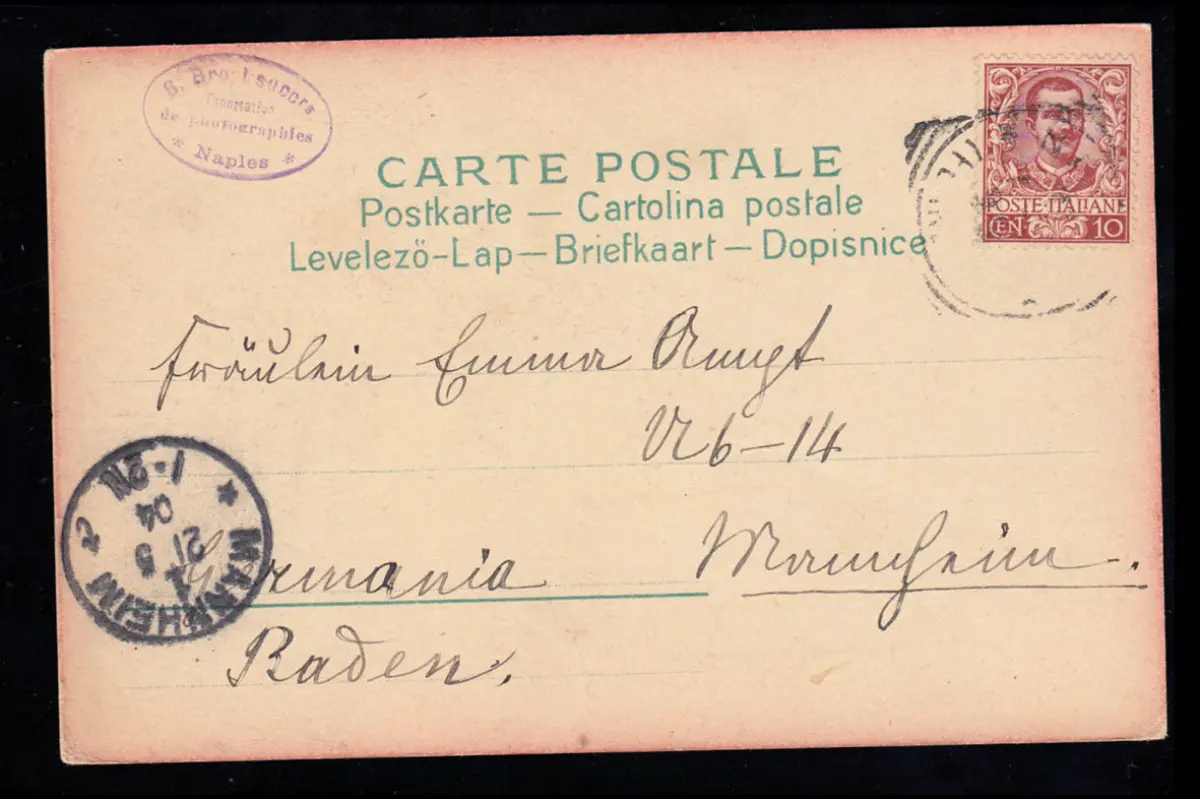 de photographies
* Naples *
CARTE POSTALE
Postkarte — Cartolina postale
Levelező-Lap — Briefkaart — Dopisnice
POSTE·ITALIANE
CEN· 10
Fräulein Emma
6-14
Mannheim.
Germania
Baden.
MANNHEIM
1
21 5
04
1-2N